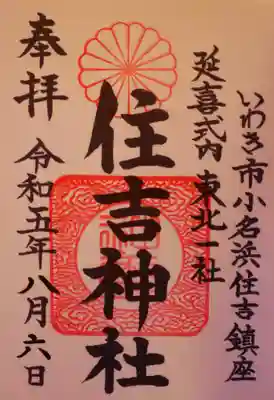 いわき市小名浜住吉鎮座
延喜式内 東北一社
住吉神社
奉拝
令和五年八月六日